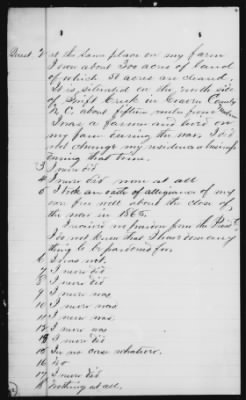 Quest 2 at the same place on my farm
I own about 300 acres of land
of which 50 acres are cleared.
It is situated on the north side
of Swift Creek in Craven County
N C, about fifteen miles from
I was a farmer and lived on
my farm during the war, I did
not change my residence or business
during that time.
3 I never did
4 I never did now at all
5 I took an oath of allegiance of my
own free will about the close of
the war in 1865.
I received no pardon from the Prest.
I do not know that I have done any
thing to be pardoned for.
6 I was not.
7 I never did
8 I never did
9 I never was
10 I never was
11 I never was.
12 I never was
13 I never did
15 In no case whatever.
16 No
17 I never did
18 Nothing at all,